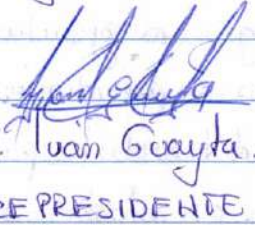 . Iván Guayta.
CEPRESIDENTE